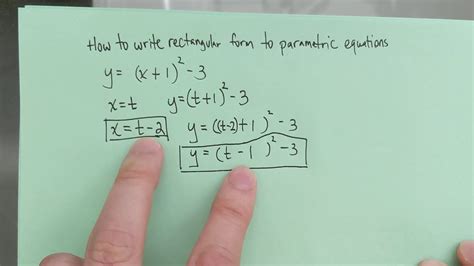 How to write rectangular form to parametric equations
y = (x+1)² - 3
x=t y=(t+1)² - 3
x=t-2 y=((t-2)+1)² - 3
y=(t-1)² - 3